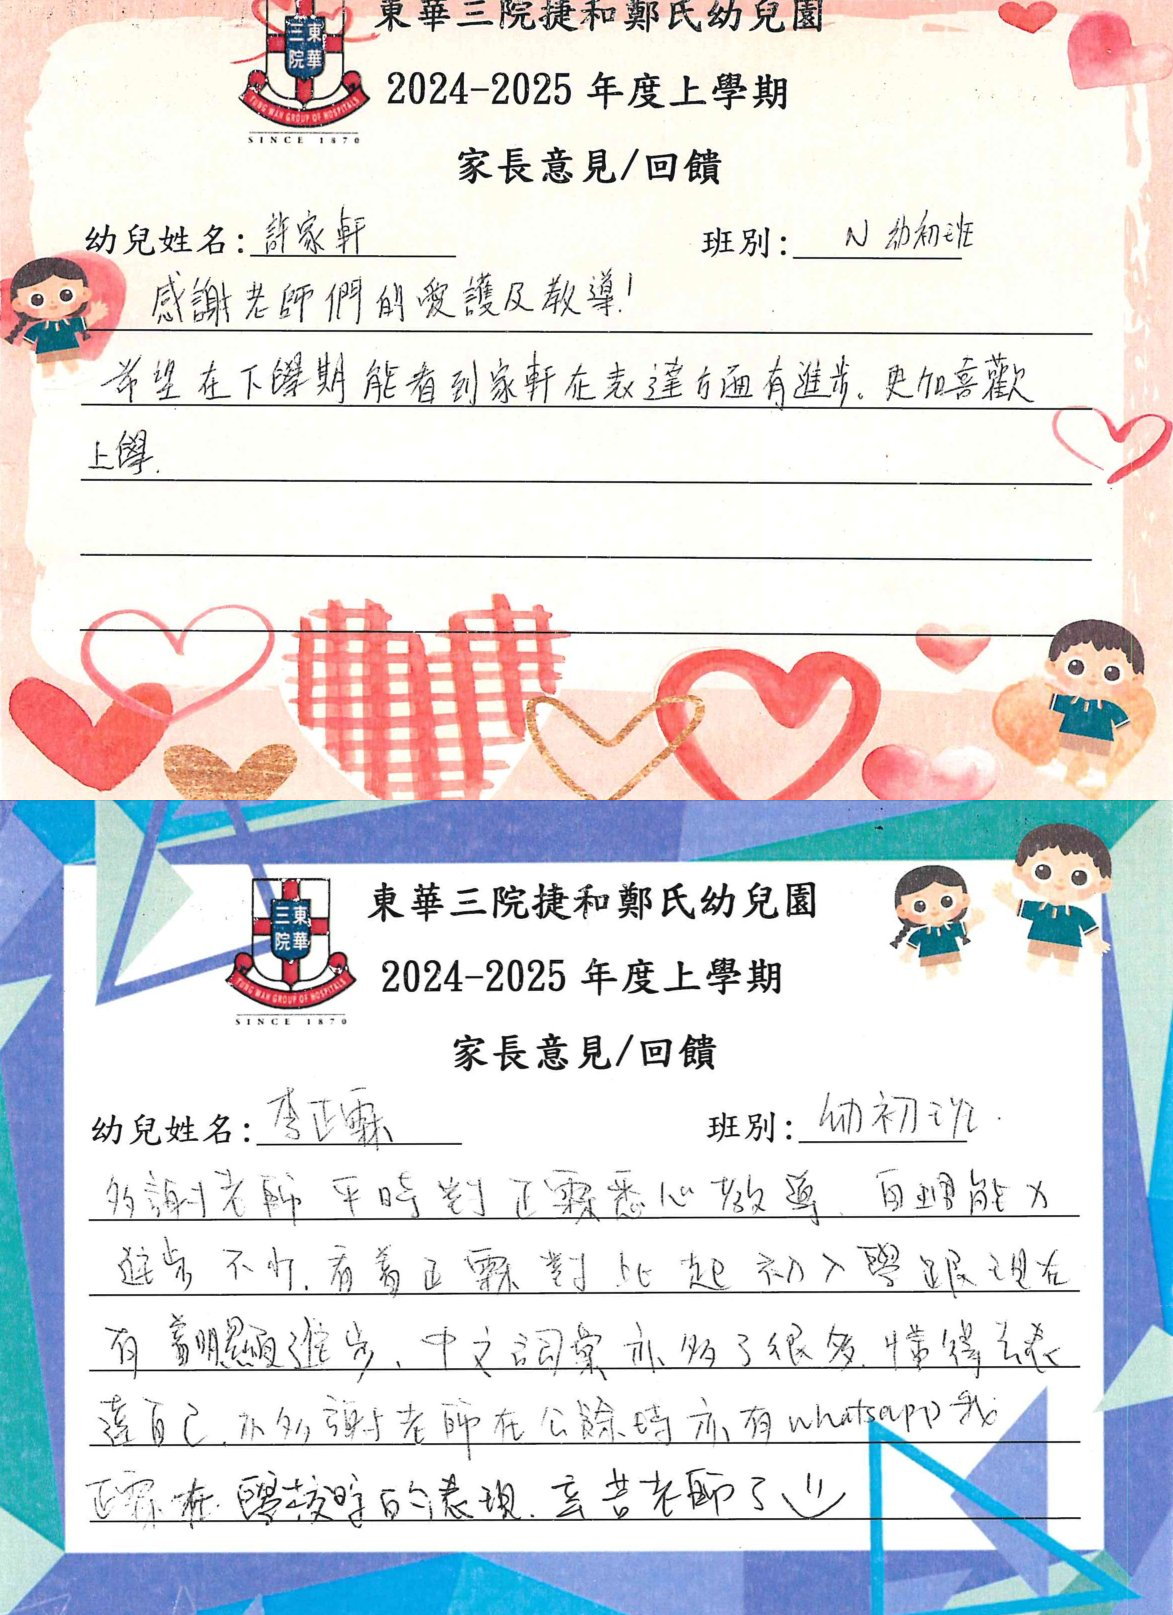 東華三院捷和鄭氏幼兒園
三東
院華
TUNG WAH GROUP OF HOSPITALS
SINCE 1870
2024-2025 年度上學期
家長意見/回饋
幼兒姓名：許家軒 班別：N 幼初班
感謝老師們的愛護及教導！
希望在下學期能看到家軒在表達方面有進步。更加喜歡
上學.
東華三院捷和鄭氏幼兒園
三東
院華
TUNG WAH GROUP OF HOSPITALS
SINCE 1870
2024-2025 年度上學期
家長意見/回饋
幼兒姓名：李正霖 班別：幼初班.
多謝老師平時對正霖悉心教導、自理能力
進步不少, 看着正霖對比起初入學跟現在
有着明顯進步、中文詞彙亦多了很多, 懂得去表
達自己, 亦多謝老師在公餘時亦有whatsapp我
正霖在學校時的表現, 辛苦老師了